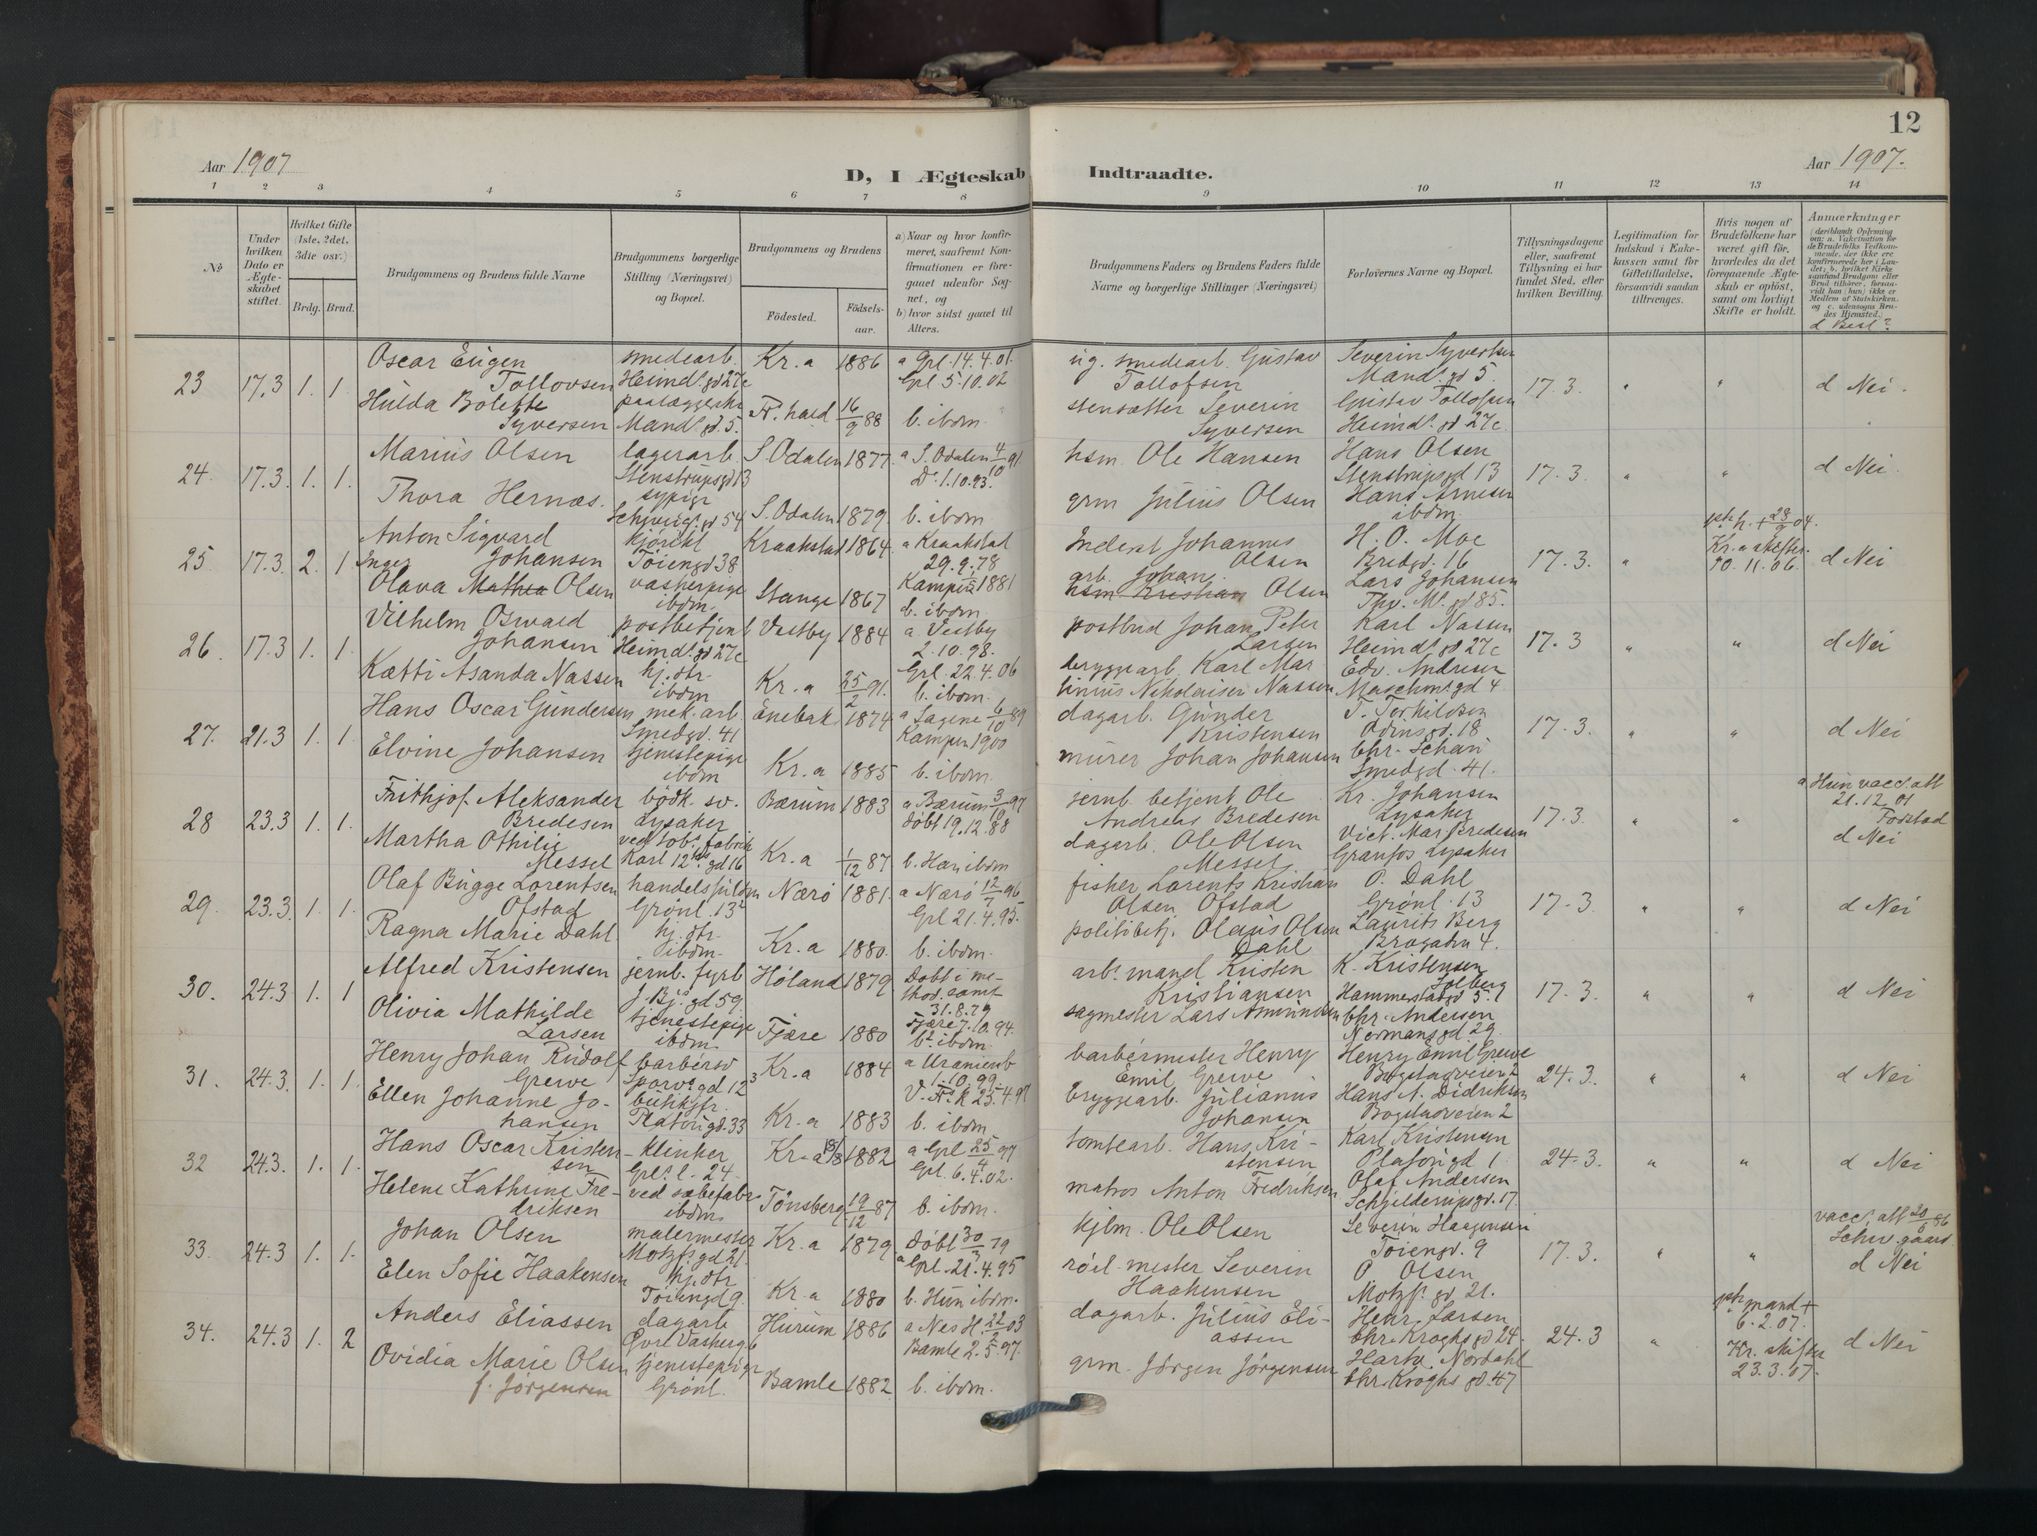 12
Aar 1907
D, I Ægteskab Indtraadte.
Aar 1907.
1 2 3 4 5 6 7 8 9 10 11 12 13 14
№
Under hvilken Dato er Ægteskabet stiftet.
Hvilket Gifte (1ste, 2det, 3die osv.)
Brdg. Brud.
Brudgommens og Brudens fulde Navne
Brudgommens borgerlige Stilling (Næringsvei) og Bopæl.
Brudgommens og Brudens
Fødested.
Fødselsaar.
a) Naar og hvor konfirmeret, saafremt Konfirmationen er foregaaet udenfor Sognet, og
b) hvor sidst gaaet til Alters.
Brudgommens Faders og Brudens Faders fulde Navne og borgerlige Stillinger (Næringsvei)
Forlovernes Navne og Bopæl.
Tillysningsdagene eller, saafremt Tillysning ei har fundet Sted, efter hvilken Bevilling.
Legitimation for Indskud i Enkekassen samt for Giftetilladelse, forsaavidt saadan tiltrænges.
Hvis nogen af Brudefolkene har været gift før, hvorledes da det foregaaende Ægteskab er opløst, samt om lovligt Skifte er holdt.
Anmærkninger
(deriblandt Oplysning om: a. Vakcination for de Brudefolks Vedkommende, der ikke ere konfirmerede her i Landet; b. hvilket Kirkesamfund Brudgom eller Brud tilhører, forsaavidt han (hun) ikke er Medlem af Statskirken, og c. udensogns Brudes Hjemsted.)
d Besl?
23 17.3 1. 1 Oscar Eugen Tollovsen smedearb. Heimd.gd 27c Kr.a 1886 a Grl. 14.4.01. Grl 5.10.02
ug. smedearb. Gustav Tollofsen Severin Syvertsen Mand. gd 5. 17.3. " " d Nei.
Hulda Bolette Syversen Mand. gd. 5. Fr. hald 16/9 88 b. ibdm.
stensætter Severin Syversen Gustav Tollofsen Heimd. gd 27c
24. 17.3. 1. 1 Marius Olsen lagerarb. Stenstrupsgd 13 S. Odalen 1877 a S. Odalen 4/10 91 D: 1.10.93.
hsm. Ole Hansen Hans Olsen Stenstrupsgd 13 17.3. " d Nei.
Thora Hernæs. sypige Schweigs. gd 54 S. Odalen 1879 b. ibdm
grm Julius Olsen Hans Arnesen ibdm.
25 17.3. 2. 1 Anton Sigvard Johansen kjørekl Tøiengd 38 Kraakstad 1864. a Kraakstad 29.9.78
Inderst Johannes Olsen H. O. Moe Bredgd. 16 17.3. " Kr. a skifter 10.11.06. d Nei
Inger Olava Mathea Olsen vaskerpige ibdm. Stange 1867 Kampen 1881 b. ibdm.
arb. Johan hsm Kristian Olsen Lars Johansen Thv. M. gd 85.
26 17.3 1. 1. Vilhelm Oswald Johansen postbetjent Heimd. gd 27c Vestby 1884 a Vestby 2.10.98.
postbud Johan Peter Larsen Karl Nassen Heimd. gd 27c 17.3 " " d Nei
Kætti Asanda Nassen hj. dtr. ibdm Kr.a 25/2 91. Grl. 22.4.06 b. ibdm.
bryggearb. Karl Martinius Nikolaisen Nassen Edv. Andresen Maschm. gd 4.
27. 21.3 1. 1. Hans Oscar Gundersen mek. arb Smedgd. 41 Enebak 1874 a Sagene 6/10 89 Kampen 1900
dagarb. Gunder Kristensen T. Torkildsen Odinsgd. 18 17.3. " " d Nei
Elvine Johansen tjenestepige ibdm Kr.a 1885 b. ibdm.
murer Johan Johansen Chr. Schau Smedgd. 41.
28 23.3 1. 1. Frithjof Aleksander Bredesen bødk. sv. Lysaker Bærum 1883 a Bærum 3/10 97 døbt 19.12.88
jernb. betjent Ole Andreas Bredesen Kr. Johansen Lysaker 17.3. " " a Hun vacc. att 21.12.01 d Nei
Martha Othilie Messel ved tob. fabrik Karl 12tes gd 16 Kr.a 1/12 87 b. Han ibdm
dagarb. Ole Olsen Messel Vict. Mar. Bredesen Granfos Lysaker
29. 23.3. 1. 1. Olaf Bugge Lorentsen Ofstad Grønl. 13 Nærø 1881. a Nærø 12/7 96 Grl 21.4.95.
fisker Lorents Kristian Olsen Ofstad O. Dahl Grønl. 13 17.3 " " d Nei
Ragna Marie Dahl hj. dtr. ibdm. Kr.a 1880. b. ibdm.
politibetj. Olaus Olsen Dahl Laurits Berg Brogadn 4.
30. 24.3 1. 1 Alfred Kristensen jernb. fyrb. J. Bj. gd 59 Høland 1879 Døbt i method. samf 31.8.79
arb. mand Kristen Kristiansen K. Kristensen Solberg Hammerstadgd 5. 17.3. " " d Nei
Olivia Mathilde Larsen tjenestepige ibdm. Fjære 1880 Fjære 7.10.94. b. ibdm.
sagmester Lars Amundsen Chr. Andersen Normansgd 29.
31. 24.3. 1. 1. Henry Johan Rudolf Greive barbersv Sporv. gd 12 Kr.a 1884 a Uranienb 1.10.99.
barbérmester Henry Emil Greive Henry Emil Greve Bogstadveien 2 24.3. " " d Nei
Ellen Johanne Johansen butikfr. Kr.a 1883 b. ibdm.
bryggearb. Julianus Johansen Hans A. Didriksen Bogstadveien 2
32 24.3. 1. 1. Hans Oscar Kristensen klinker Grl. l. 24. Kr.a 1882 a Grl 25/4 97 Grl. 6.4.02.
tomtearb. Hans Kristensen Karl Kristensen 24.3. " " d Nei
Helene Kathrine Fredriksen ved sæbefabr ibdm Tønsberg 19/12 87 b. ibdm.
matros Anton Fredriksen Olaf Andersen Schjelderupsgd. 17.
33. 24.3 1. 1. Johan Olsen malermester Motzfs gd 21. Kr.a 1879. Døbt 30/3 79 a Grl. 21.4.95
kjbm. Ole Olsen Severin Haagensen Tøiengd. 9 17.3. " " vacc. att 20/6 86 d Nei
Elen Sofie Haakensen hj. dtr Tøiengd 9. Kr.a 1880 b. Hun ibdm.
mester Severin Haakensen O Olsen Motzfs. gd 21.
34. 24.3 1. 2 Anders Eliassen dagarb Hurum 1886 a Nes H. 22/2 03
dagarb. Julius Eliassen Henr. Larsen Chr. Kroghs gd 24. 24.3 " mand + 6.2.07. Kr. skifter 23.3.07. d Nei
Ovidia Marie Olsen f. Jørgensen tjenestepige Grønl. Bamle 1882 Bamle 2.5.97. b. ibdm.
grm. Jørgen Jørgensen Hartv. Nordahl Chr. Kroghs gd. 47